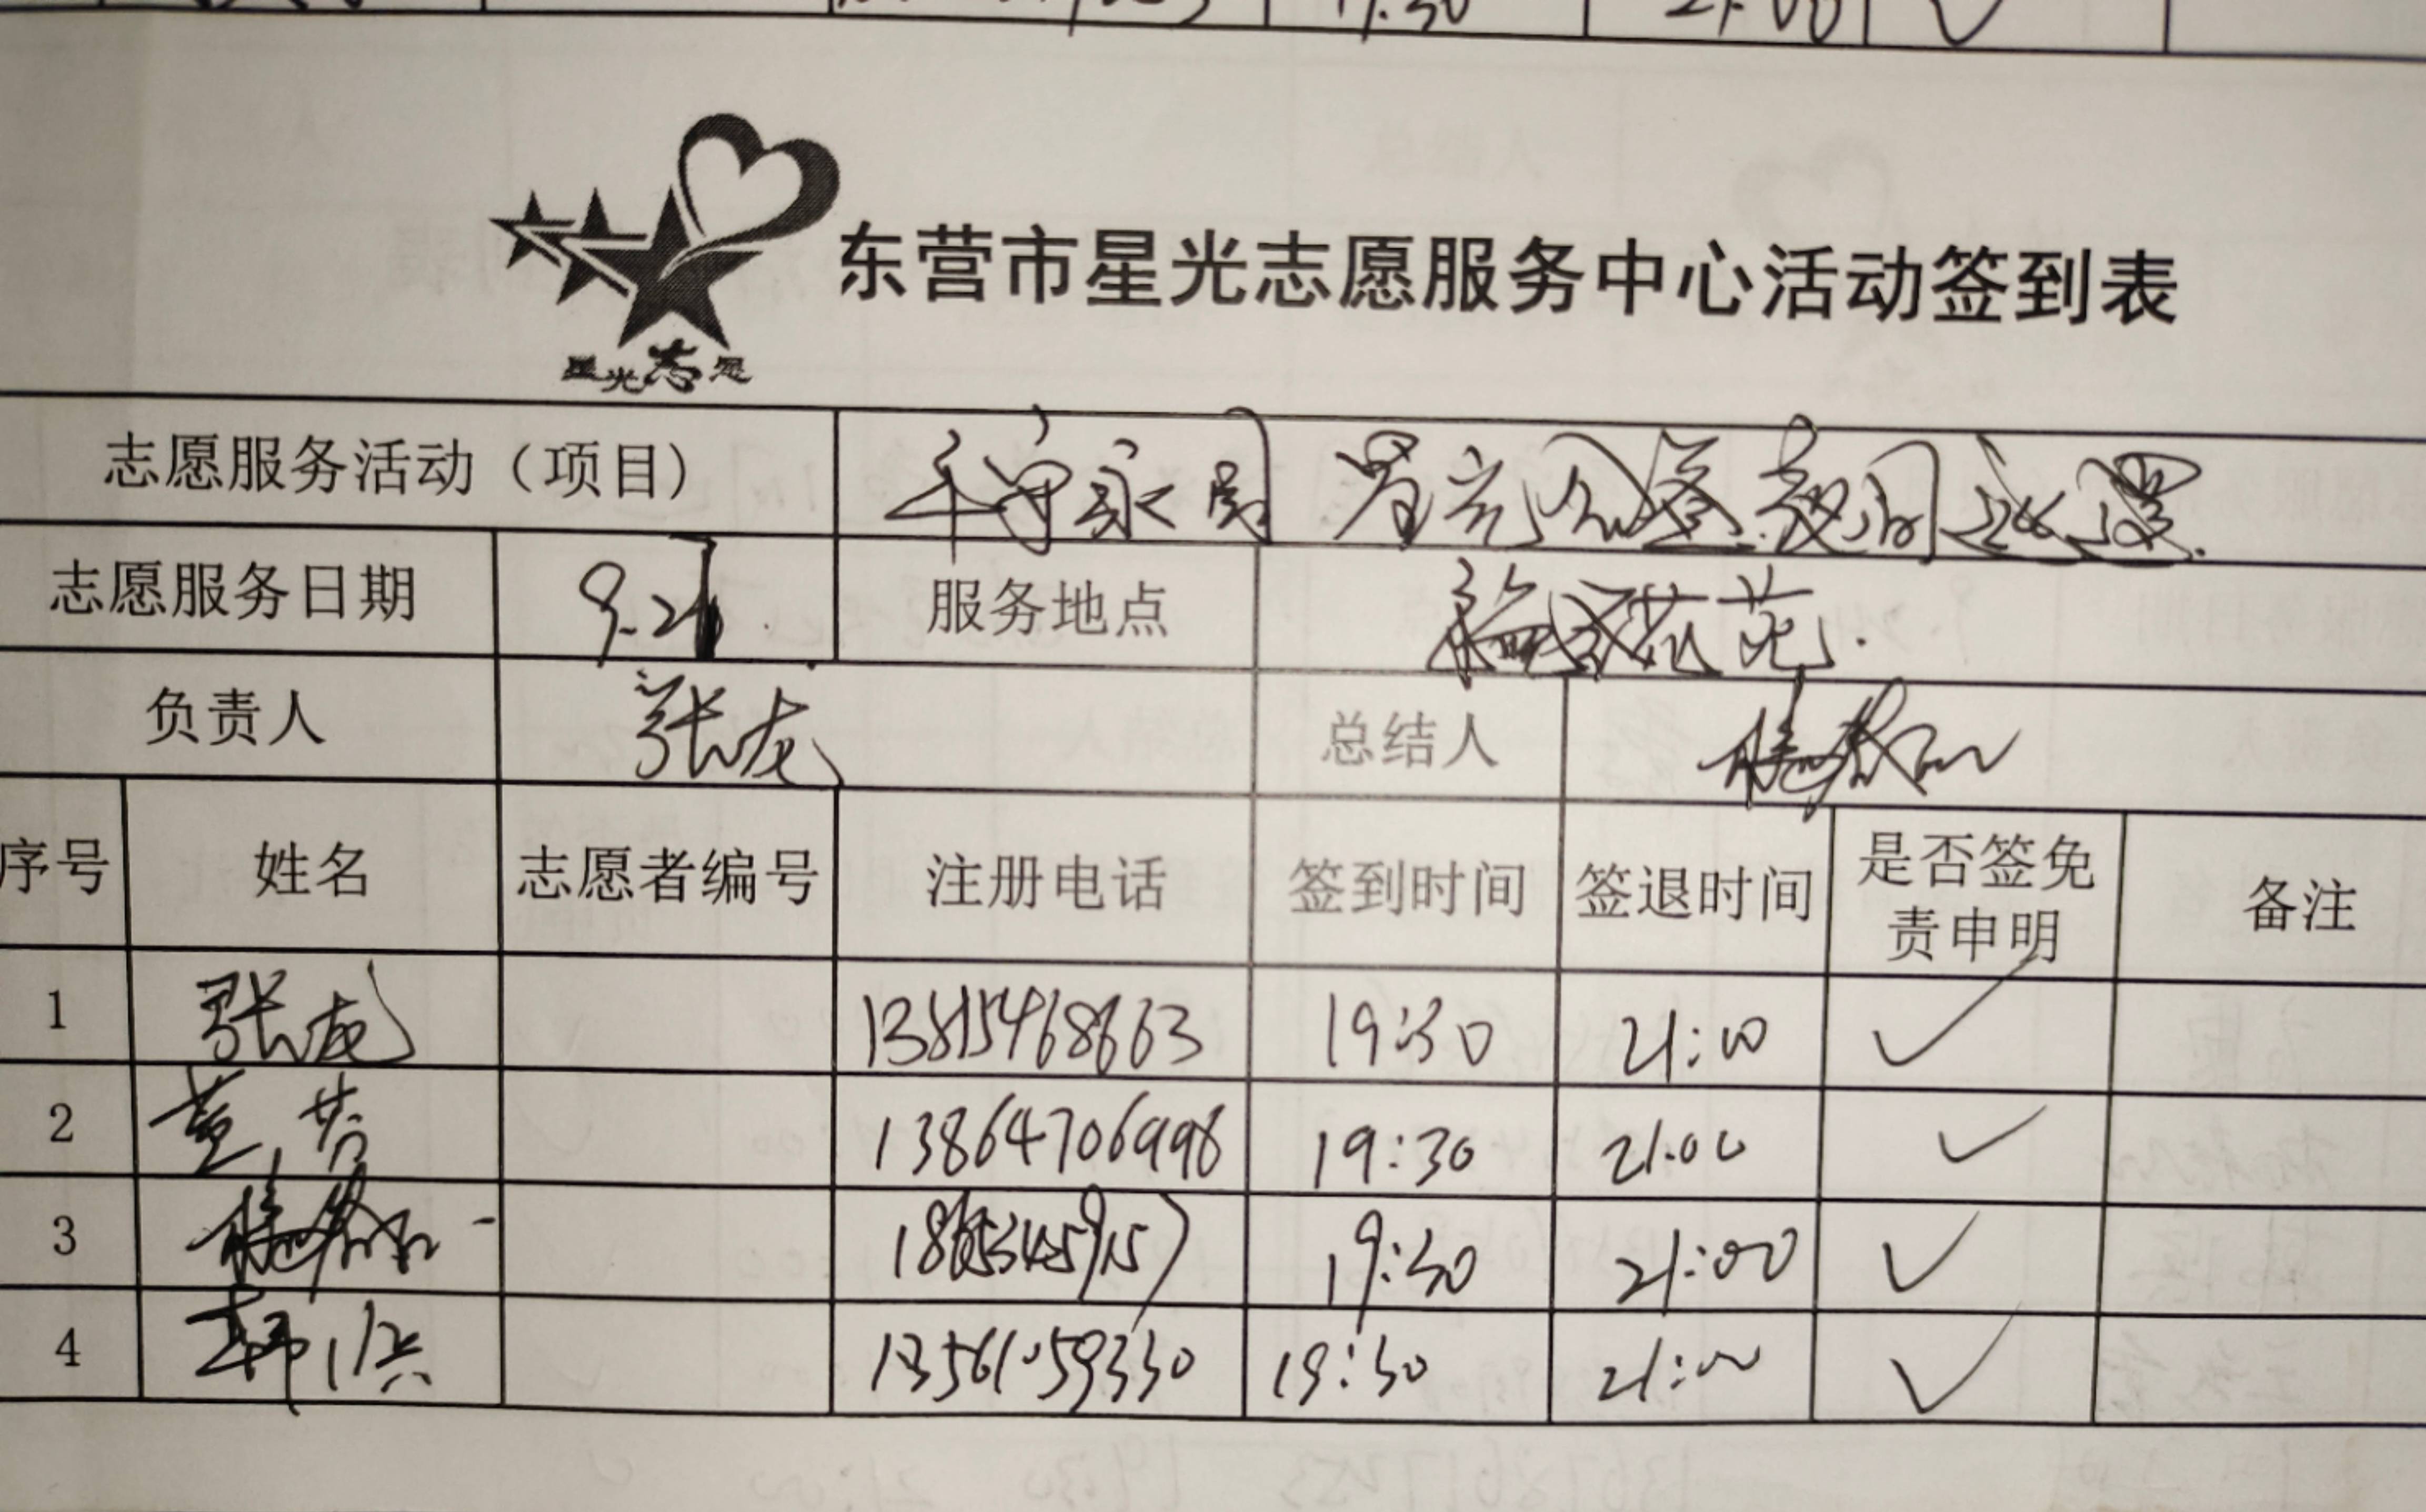 19:30 21:00 ✓
东营市星光志愿服务中心活动签到表
星光志愿
志愿服务活动（项目） 平安东营 星光公益夜间巡逻
志愿服务日期 9.21 服务地点 花苑.
负责人 张龙 总结人
序号 姓名 志愿者编号 注册电话 签到时间 签退时间 是否签免责申明 备注
1 张龙 19:30 21:00 ✓
2 董芳 13864706998 19:30 21:00 ✓
3 19:30 21:00 ✓
4 韩洪 13561059330 19:30 21:00 ✓